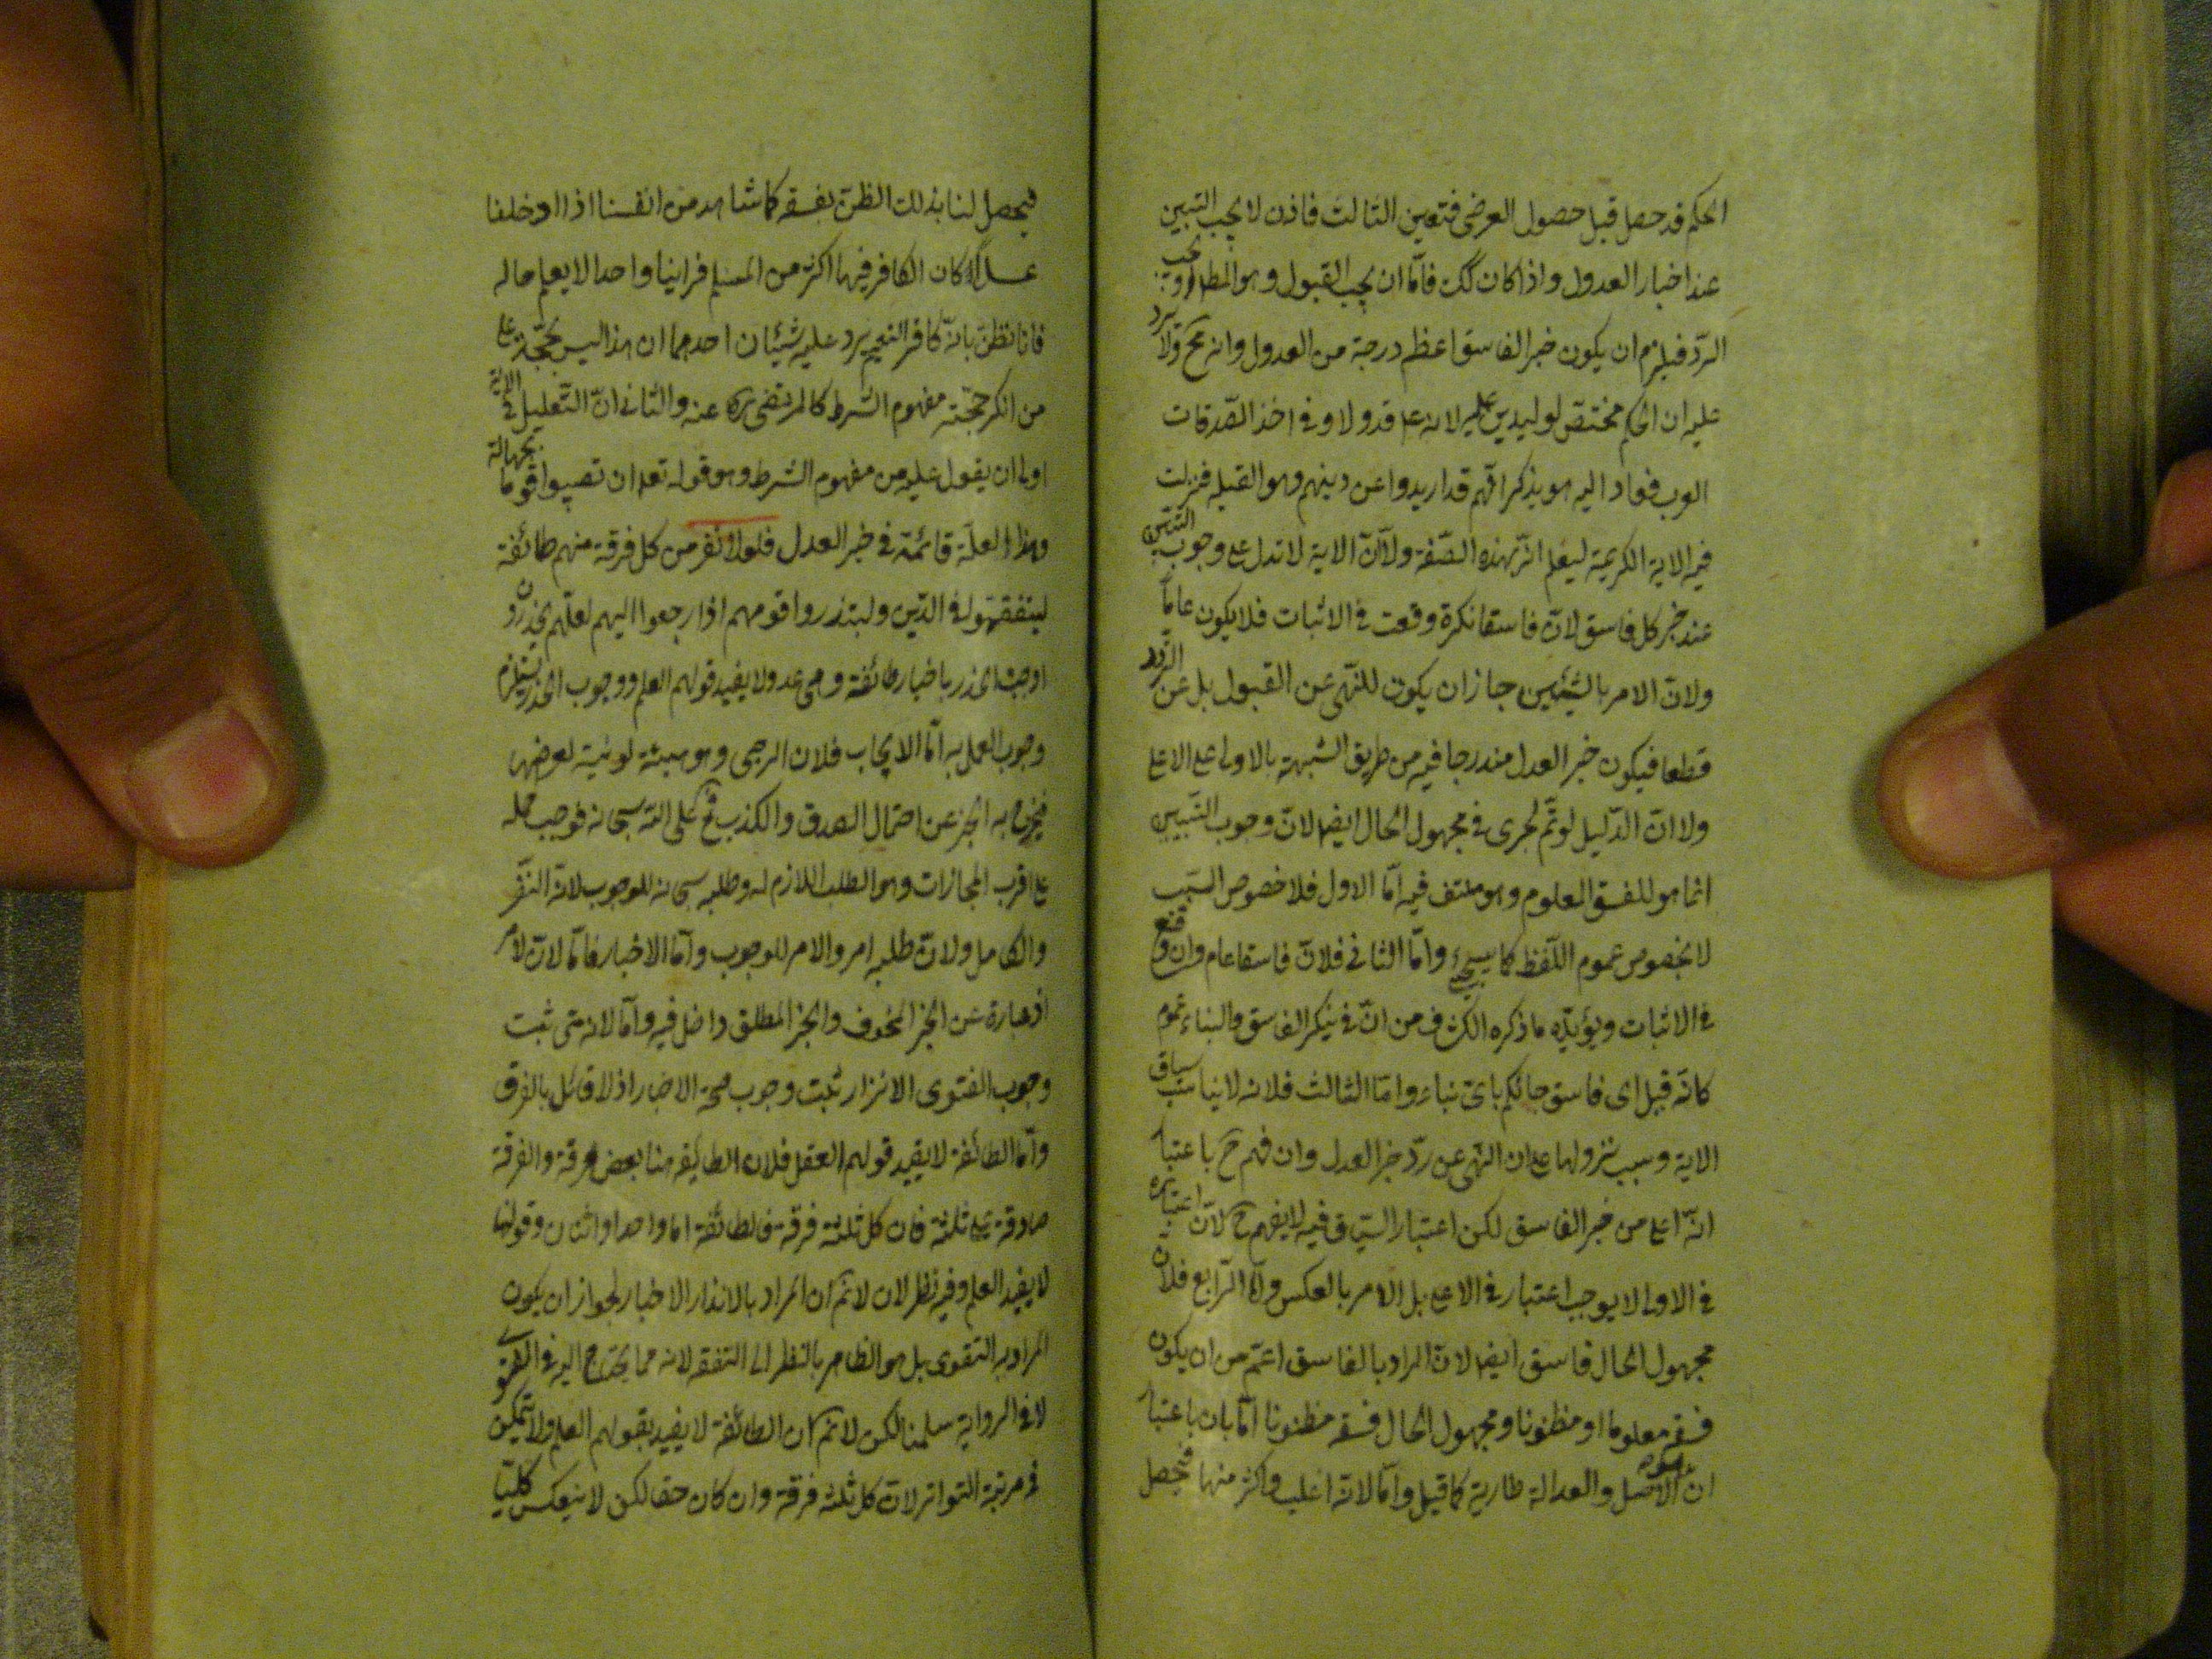 الحكم قد حصل قبل حصول العرضى فتعين الثالث فاذن لا يجب التبين
عند اخبار العدول واذا كان كك فامّا ان يجب القبول وهو المط او يجب
الردّ فيلزم ان يكون خبر الفاسق اعظم درجة من العدول وانه مح ولا يرد
عليه ان الحكم مختصّ لوليد بن لانه قد ولاو فى اخذ الصّدقات
فعاد اليه هو يذكر انّهم قد اريدوا عن دينهم وهو القبيله فنزلت
فيه الاية الكريمة ليعلم انّه بهذه الصّفة ولا انّ الاية لا تدل على وجوب التبيّن
عند خبر كل فاسق لانّ فاسقا نكرة وقعت فى الاثبات فلا يكون عامّا
ولانّ الامر بالشيئين جاز ان يكون للنّهى عن القبول بل عن الردّ
قطعا فيكون خبر العدل مندرجا فيه من طريق الشبهة بالاولى على الاعلى
ولا انّ الدّليل لو تمّ لجرى فى مجهول الحال ايضا لانّ وجوب التّبيين
انما هو للفسق المعلوم وهو منتف فيه امّا الاول فلا خصوص السّبب
لا يخصوص عموم اللّفظ كما سيجىء وامّا الثانى فلانّ فاسقا عام وان وقع
فى الاثبات ويؤيّده ما ذكره الكشاف من انّ فى تنكر الفاسق والنباء عموم
كانّه قيل اى فاسق جائكم باىّ نباء وامّا الثالث فلانه لا يناسب سياق
الاية وسبب نزولها على ان النّهى عن ردّ خبر العدل وان فهم ح باعتبا
انّه اعلى من خبر الفاسق لكن اعتبار السّياق فيه لا يفهم ح لانّ اعتباره
فى الاولى لا يوجب اعتبار فى الاعلى بل الامر بالعكس وامّا الرّابع فلانّ
مجهول الحال فاسق ايضا لانّ المراد بالفاسق اعمّ من ان يكون
فسقه معلوما او مظنونا ومجهول الحال فسقه مظنونا امّا بان باعتبا
ان الاصل والعدالة طارية كما قيل وامّا لانّه اغلب واكثر منها فيحصل
فيحصل لنا بذلك الظنّ بفسقه كما شاهد من انفسنا اذا ادخلنا
كان الكافر فيها اكثر من المسلم فراينا واحدا لا يعلم حاله
فانا نظنّ بانّه كافر يرد عليه شيئان احدهما ان هذا ليس بحجّة على
من انكر حجّية مفهوم الشرط كالمرتضى عنه والثانى انّ التّعليل فى الاية
اولى ان يقول عليه من مفهوم الشرط وهو قوله تعلى ان تصيبوا قوما بجهالة
وهذا العلّة قائمة فى خبر العدل فلولا نفر من كل فرقة منهم طائفة
ليتفقهوا فى الدّين ولينذروا قومهم اذا رجعوا اليهم لعلّهم يحذرون
اوجب الحذر باخبار طائفة وهى عدد لا يفيد قولهم العلم ووجوب الحذر يستلزم
وجوب العمل به امّا الايجاب فلان الرجى وهو
به الخبر عن احتمال الصدق والكذب على الله سبحانه فوجب حمله
على اقرب المجازات وهو الطلب اللازم له وطلبه سبحانه للوجوب لانّه
والكامل ولانّ طلبه امر والامر للوجوب وامّا الاخبار فامّا لانّ
عبارة عن الخبر المخوف والخبر المطلق داخل فيه وامّا لانه متى ثبت
وجوب الفتوى الانزار ثبت وجوب صحة الاخبار اذ لا قائل بالفرق
وامّا الطائفة لا يفيد قولهم العقل فلان الطائفة هنا بعض فرقة والفرقة
صادقة على ثلثة فان كل ثلثة فرقة فالطائفة اما واحد او اثنان وقولها
لا يفيد العلم وفيه نظر لان لا نم ان المراد بالانذار الاخبار لجواز ان يكون
المراد به التقوى بل هو الظاهر بالنظر الى التفقه لانه مما يحتاج اليه فى الفتوى
لا فى الرواية سلمنا لكن لا نم ان الطائفة لا يفيد بقولهم العلم ولا تمكن
فى مرتبة التواتر لانّ كل ثلثه فرقة وان كان حقا لكن لا ينعكس كليّا